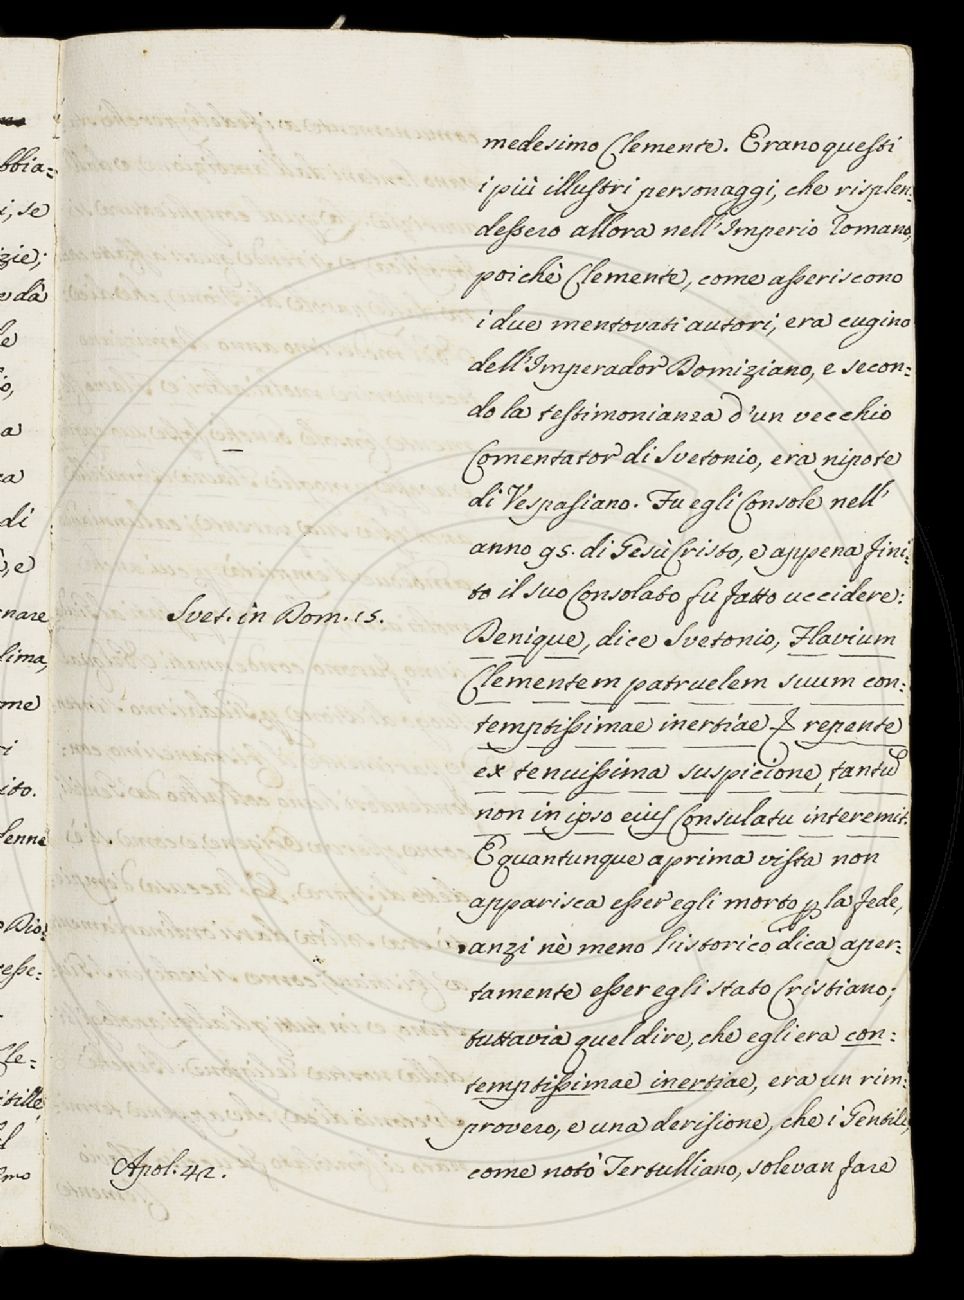 medesimo Clemente. Erano questi
i più illustri personaggi, che risplen:
dessero allora nell'Imperio Romano,
poichè Clemente, come asseriscono
i due mentovati autori, era cugino
dell'Imperador Domiziano, e secon:
do la testimonianza d'un vecchio
Comentator di Svetonio, era nipote
di Vespasiano. Fu egli Console nell'
anno 95. di Gesù Cristo, e appena fini:
to il suo Consolato fu fatto uccidere:
Svet. in Dom. 15.
Denique, dice Svetonio, Flavium
Clementem patruelem suum con:
temptissimae inertiae repente
ex tenuissima suspicione, tantu
non in ipso eius Consulatu interemit.
E quantunque a prima vista non
apparisca esser egli morto p la fede,
anzi nè meno l'istorico dica aper:
tamente esser egli stato Cristiano;
tuttavia quel dire, che egli era con:
temptissimae inertiae, era un rim:
provero, e una derisione, che i Gentili,
Apol. 42.
come notò Tertulliano, solevan fare
bbia:
i, se
zie;
e dà
le
io,
a
za
di
e
nare
lima,
me
ri
ito.
lenne
Dio:
esse:
Cle:
itille